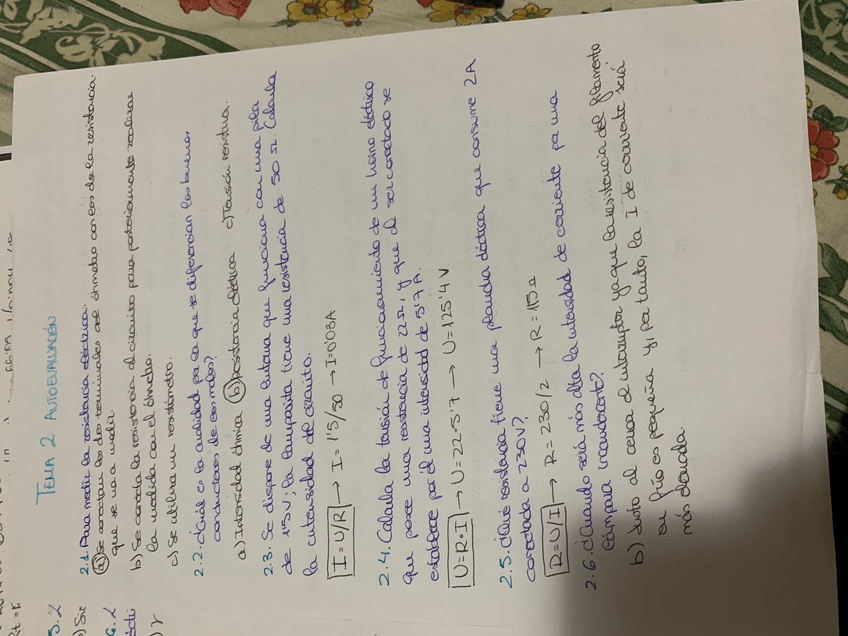 TEMA 2 AUTOEVALUACIÓN
2.1. Para medir la resistencia eléctrica:
a) Se conectan los dos terminales del óhmetro con los de la resistencia
que se va a medir
b) Se conecta la resistencia al circuito para posteriormente realizar
la medida con el óhmetro.
c) Se utiliza un resistómetro.
2.2. ¿Cuál es la cualidad por la que se diferencian los buenos
conductores de los malos?
a) Intensidad óhmica b) resistencia eléctrica c) Tensión resistiva.
2.3. Se dispone de una linterna que funciona con una pila
de 1'5V; la lamparita tiene una resistencia de 50 Ω. Calcula
la intensidad del circuito.
I = U/R → I = 1'5/50 → I = 0'03A
2.4. Calcula la tensión de funcionamiento de un horno eléctrico
que posee una resistencia de 22Ω, y que al ser conectado se
establece por él una intensidad de 5'7A.
U = R·I → U = 22·5'7 → U = 125'4V
2.5. ¿Qué resistencia tiene una plancha eléctrica que consume 2A
conectada a 230V?
R = U/I → R = 230/2 → R = 115Ω
2.6. ¿Cuándo será más alta la intensidad de corriente por una
lámpara incandescente?
b) Justo al cerrar el interruptor ya que la resistencia del filamento
en frío es pequeña y, por tanto, la I de corriente será
más elevada.